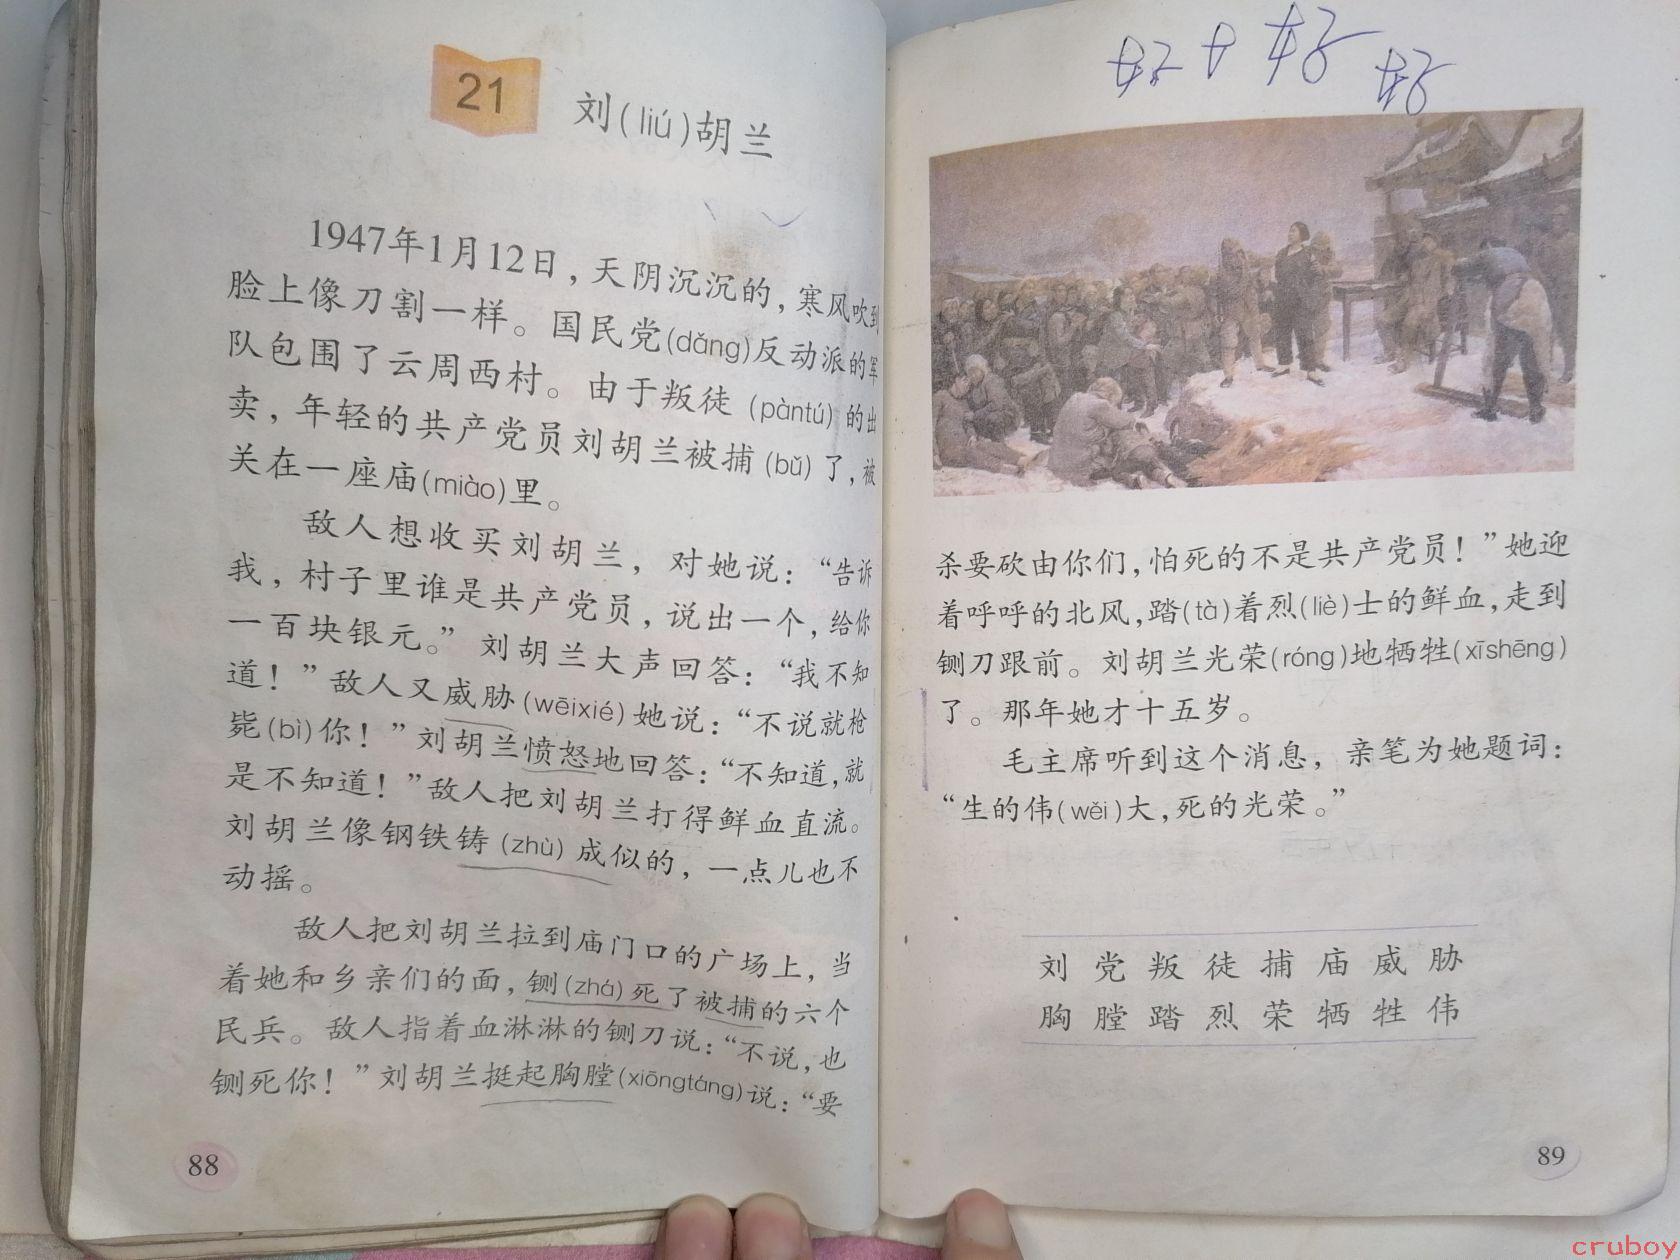 21
刘(liú)胡兰
1947年1月12日，天阴沉沉的，寒风吹到
脸上像刀割一样。国民党(dǎng)反动派的军
队包围了云周西村。由于叛徒(pàntú)的出
卖，年轻的共产党员刘胡兰被捕(bǔ)了，被
关在一座庙(miào)里。
敌人想收买刘胡兰，对她说：“告诉
我，村子里谁是共产党员，说出一个，给你
一百块银元。”刘胡兰大声回答：“我不知
道！”敌人又威胁(wēixié)她说：“不说就枪
毙(bì)你！”刘胡兰愤怒地回答：“不知道，就
是不知道！”敌人把刘胡兰打得鲜血直流。
刘胡兰像钢铁铸(zhù)成似的，一点儿也不
动摇。
敌人把刘胡兰拉到庙门口的广场上，当
着她和乡亲们的面，铡(zhá)死了被捕的六个
民兵。敌人指着血淋淋的铡刀说：“不说，也
铡死你！”刘胡兰挺起胸膛(xiōngtáng)说：“要
88
好 十 好 好
杀要砍由你们，怕死的不是共产党员！”她迎
着呼呼的北风，踏(tà)着烈(liè)士的鲜血，走到
铡刀跟前。刘胡兰光荣(róng)地牺牲(xīshēng)
了。那年她才十五岁。
毛主席听到这个消息，亲笔为她题词：
“生的伟(wěi)大，死的光荣。”
刘 党 叛 徒 捕 庙 威 胁
胸 膛 踏 烈 荣 牺 牲 伟
89
cruboy